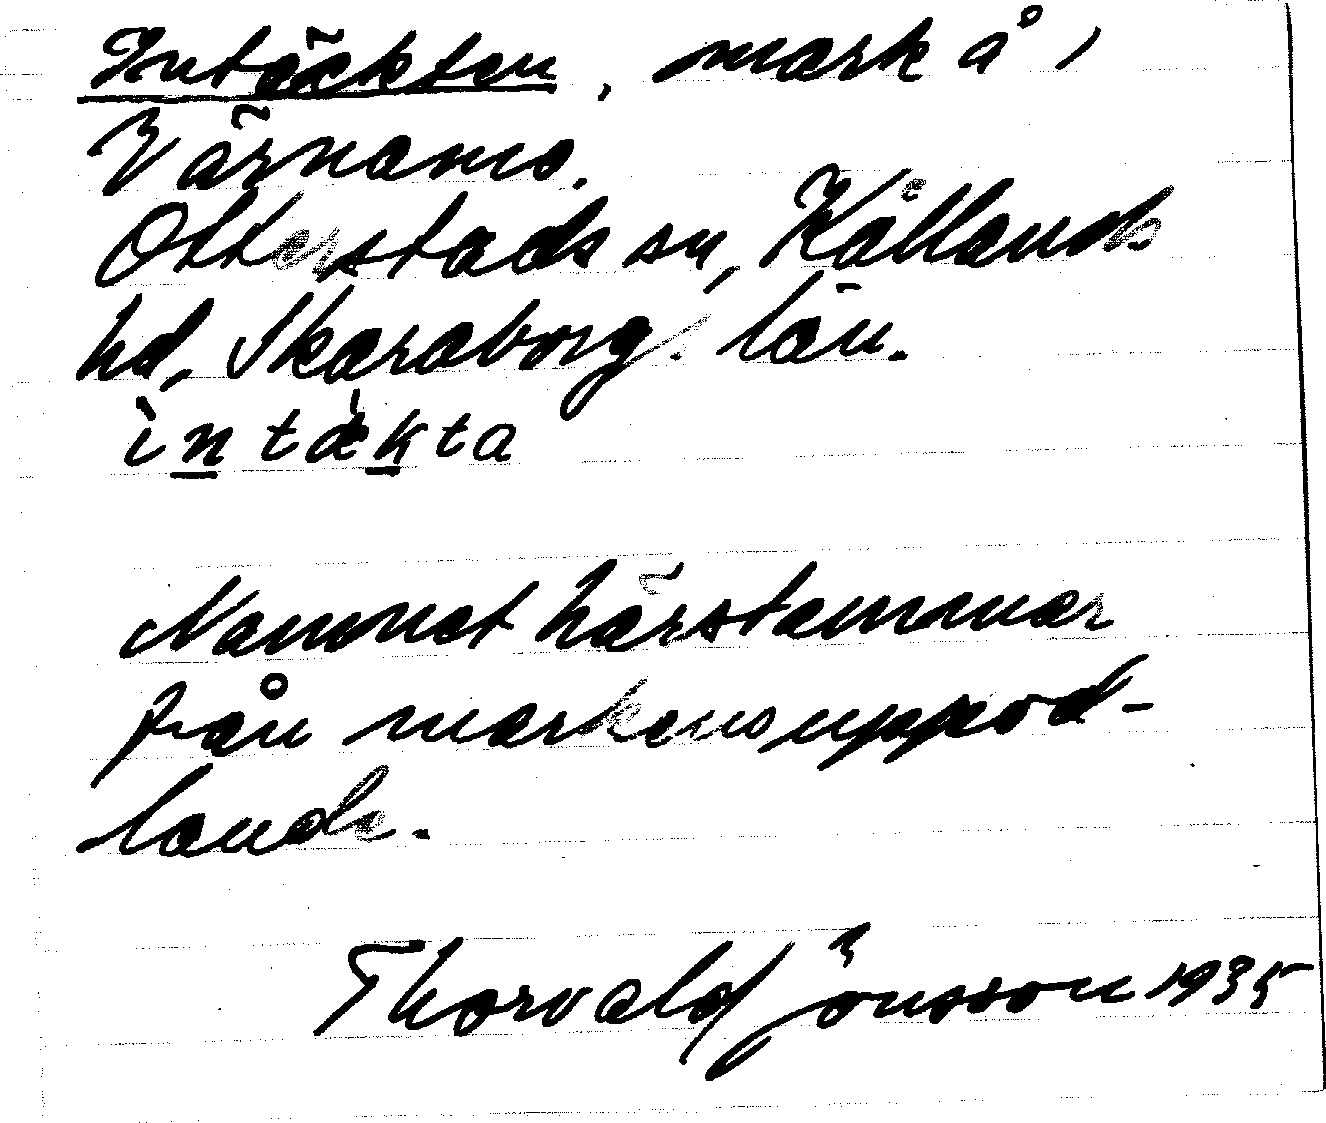 Intäckten, mark å 1
Värnamo.
Otterstads sn, Kållands
hd, Skaraborg. län.
intækta
Namnet härstammar
från markensuppod-
lande.
Thorvald Jonsson 1935